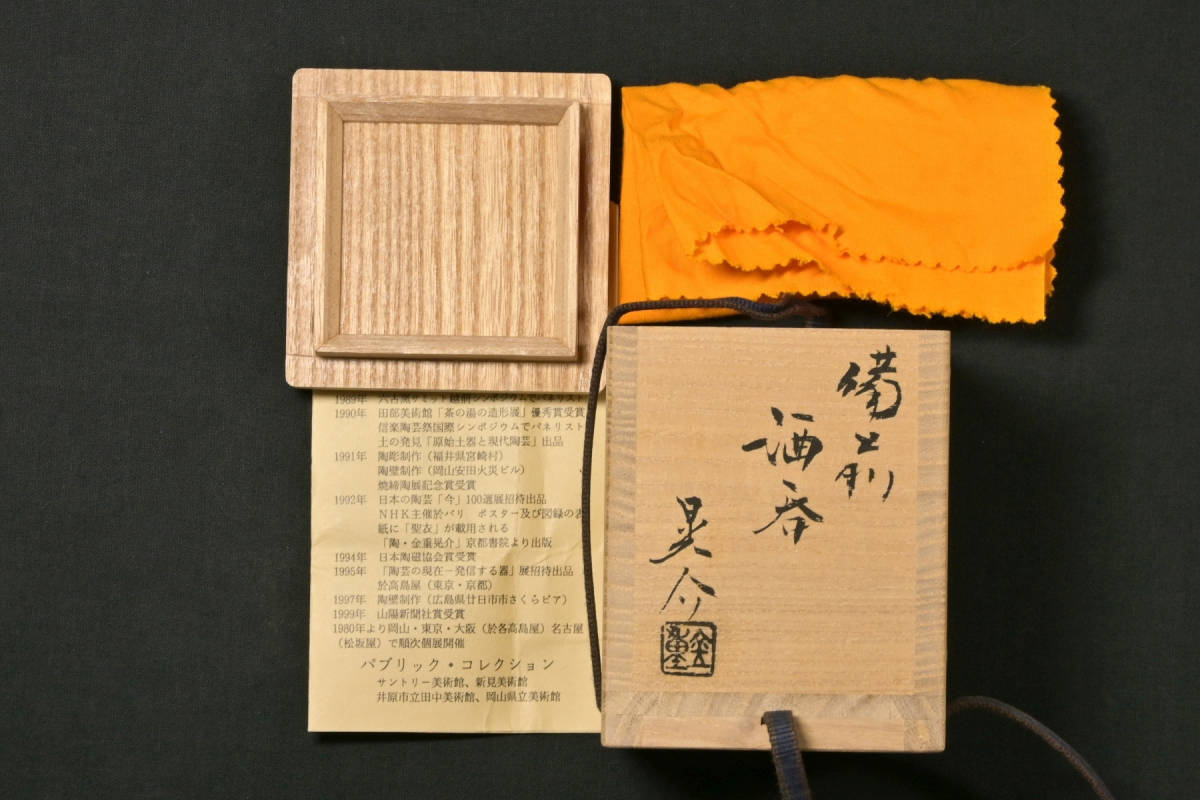 備前
酒呑
晃介
金重
1989年 六古窯サミット越前シンポジウムでパネリスト
1990年 田部美術館「茶の湯の造形展」優秀賞受賞
信楽陶芸祭国際シンポジウムでパネリスト
土の発見「原始土器と現代陶芸」出品
1991年 陶彫制作(福井県宮崎村)
陶壁制作(岡山安田火災ビル)
焼締陶展記念賞受賞
1992年 日本の陶芸「今」100選展招待出品
NHK主催於パリ ポスター及び図録の表
紙に「聖衣」が載用される
「陶・金重晃介」京都書院より出版
1994年 日本陶磁協会賞受賞
1995年 「陶芸の現在―発信する器」展招待出品
於高島屋(東京・京都)
1997年 陶壁制作(広島県廿日市市さくらピア)
1999年 山陽新聞社賞受賞
1980年より岡山・東京・大阪(於各高島屋)名古屋
(松坂屋)で順次個展開催
パブリック・コレクション
サントリー美術館、新見美術館
井原市立田中美術館、岡山県立美術館